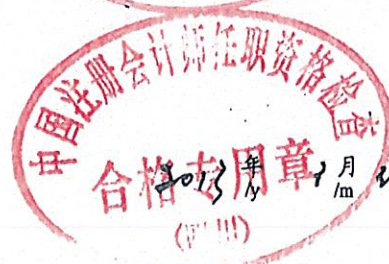 中国注册会计师任职资格检查
合格专用章
2013 年 月
/y /m
(四川)